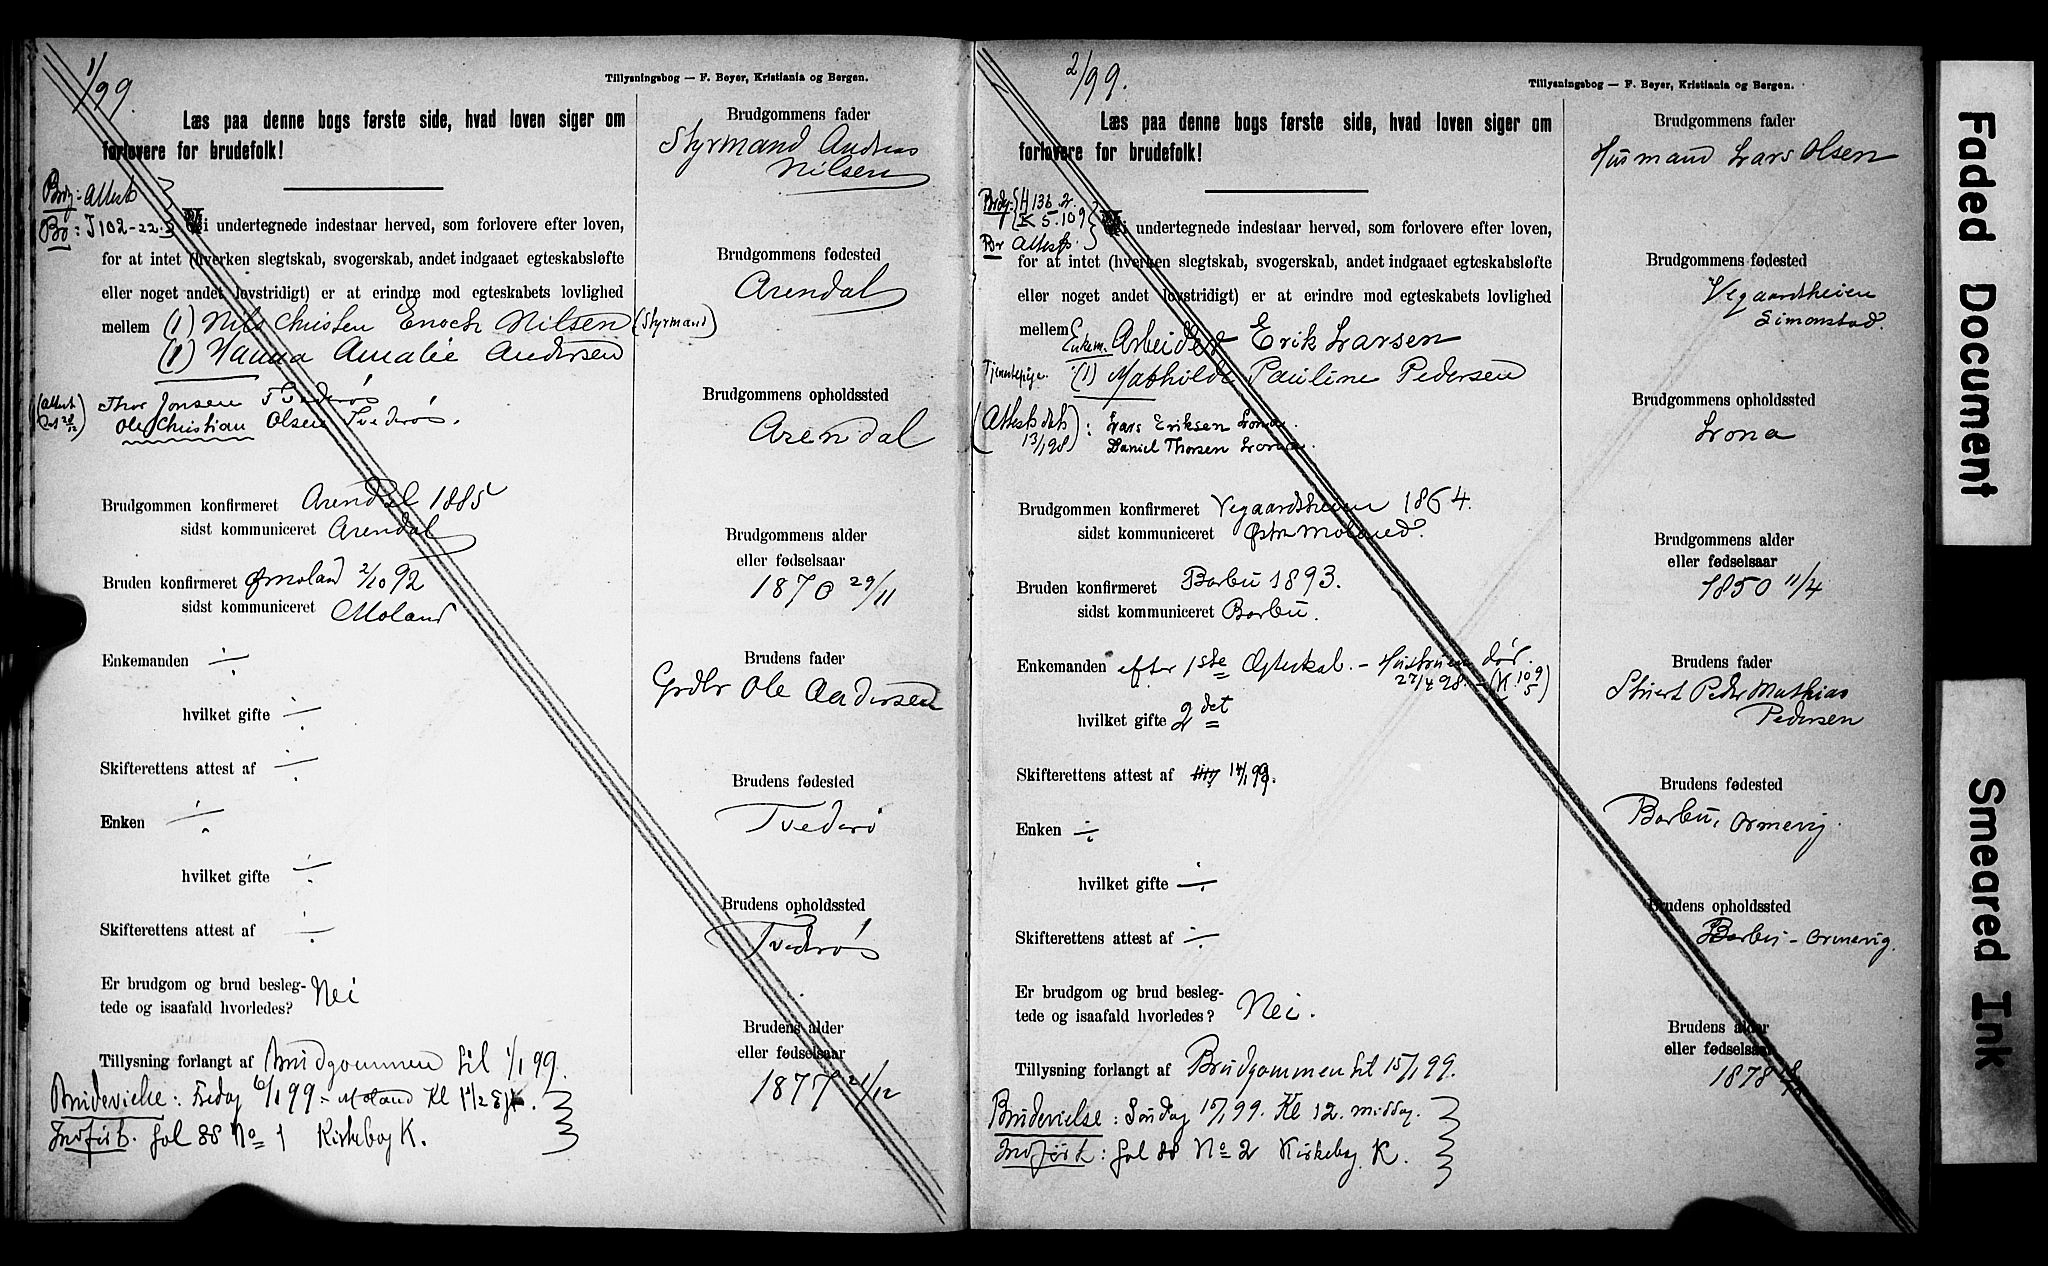 1/99
Tillysningsbog — F. Beyer, Kristiania og Bergen.
Læs paa denne bogs første side, hvad loven siger om
forlovere for brudefolk!
Brg: Attest
Br: J 102-22.
Vi undertegnede indestaar herved, som forlovere efter loven,
for at intet (hverken slegtskab, svogerskab, andet indgaaet egteskabsløfte
eller noget andet lovstridigt) er at erindre mod egteskabets lovlighed
mellem (1) Nils Christen Enoch Nilsen (Styrmand)
(1) Hanna Amalie Andersen
(Attest
Thor Jonsen Tvederøs
Ole Christian Olsen Tvederøs.
Brudgommen konfirmeret Arendal 1885
sidst kommuniceret Arendal
Bruden konfirmeret ØMoland 2/10 92
sidst kommuniceret Moland
Enkemanden ÷
hvilket gifte ÷
Skifterettens attest af ÷
Enken ÷
hvilket gifte ÷
Skifterettens attest af ÷
Er brudgom og brud besleg-
tede og isaafald hvorledes? Nei
Tillysning forlangt af Brudgommen til 1/1 99.
Brudevielse: Fredag 6/1 99 = Moland Kl 1 1/2
Indført. fol 88 No 1 Kirkebog K.
Brudgommens fader
Styrmand Andreas
Nilsen
Brudgommens fødested
Arendal
Brudgommens opholdssted
Arendal
Brudgommens alder
eller fødselsaar
1870 29/11
Brudens fader
Grdbr Ole Andersen
Brudens fødested
Tvederø
Brudens opholdssted
Tvederøs
Brudens alder
eller fødselsaar
1877 21/12
2/99.
Tillysningsbog — F. Beyer, Kristiania og Bergen.
Læs paa denne bogs første side, hvad loven siger om
forlovere for brudefolk!
K 5.109
Br Attest
Vi undertegnede indestaar herved, som forlovere efter loven,
for at intet (hverken slegtskab, svogerskab, andet indgaaet egteskabsløfte
eller noget andet lovstridigt) er at erindre mod egteskabets lovlighed
mellem Enkem. Arbeider Erik Larsen
Tjenestepige. (1) Mathilde Pauline Pedersen
(Attest dat 13/1 98): Lars Eriksen Lona.
Daniel Thorsen Lona.
Brudgommen konfirmeret Vegaardsheien 1864.
sidst kommuniceret Østre Moland.
Bruden konfirmeret Barbu 1893.
sidst kommuniceret Barbu.
Enkemanden efter 1ste Ægteskab. - Hustruen død.
27/4 98. = (K. 109/5)
hvilket gifte 2det
Skifterettens attest af 14/1 99.
Enken ÷
hvilket gifte ÷
Skifterettens attest af ÷
Er brudgom og brud besleg-
tede og isaafald hvorledes? Nei.
Tillysning forlangt af Brudgommen til 15/1 99.
Brudevielse: Søndag 15/1 99. Kl 12. middag.
Indført: fol 88 No 2 Kirkebog K.
Brudgommens fader
Husmand Lars Olsen
Brudgommens fødested
Vegaardsheien
Simonstad.
Brudgommens opholdssted
Lona
Brudgommens alder
eller fødselsaar
1850 11/4
Brudens fader
Stuert Peder Mathias
Pedersen
Brudens fødested
Barbu, Ormevig.
Brudens opholdssted
Barbu - Ormevig.
Brudens alder
eller fødselsaar
1878
Faded Document
Smeared Ink